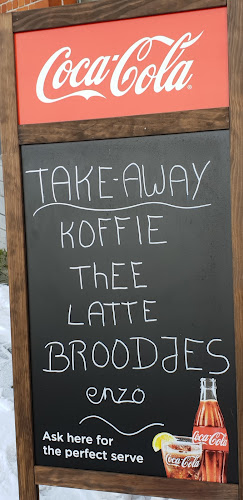 Coca-Cola
TAKE-AWAY
KOFFIE
ThEE
LATTE
BROODJES
enzo
Ask here for
the perfect serve
Coca-Cola
Coca-Cola